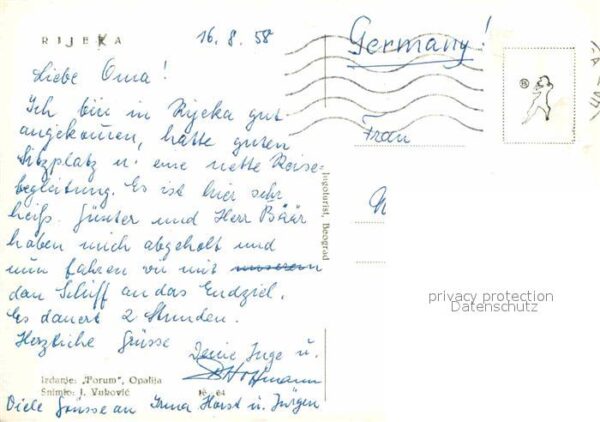 RIJEKA
16.8.58
Germany!
Liebe Oma!
Ich bin in Rijeka gut
angekommen, hatte guten
Sitzplatz u. eine nette Reise-
begleitung. Es ist hier sehr
heiß. Günter und Herr Bäär
haben mich abgeholt und
nun fahren wir mit unserem
dem Schiff an das Endziel.
Es dauert 2 Stunden.
Herzliche Grüsse
Deine Inge u.
Hoffmann
Viele Grüsse an Irma Horst u. Jürgen
Izdanje: „Forum", Opatija
Snimio: I. Vuković
16 64
Jugoturist, Beograd
Frau
privacy protection
Datenschutz